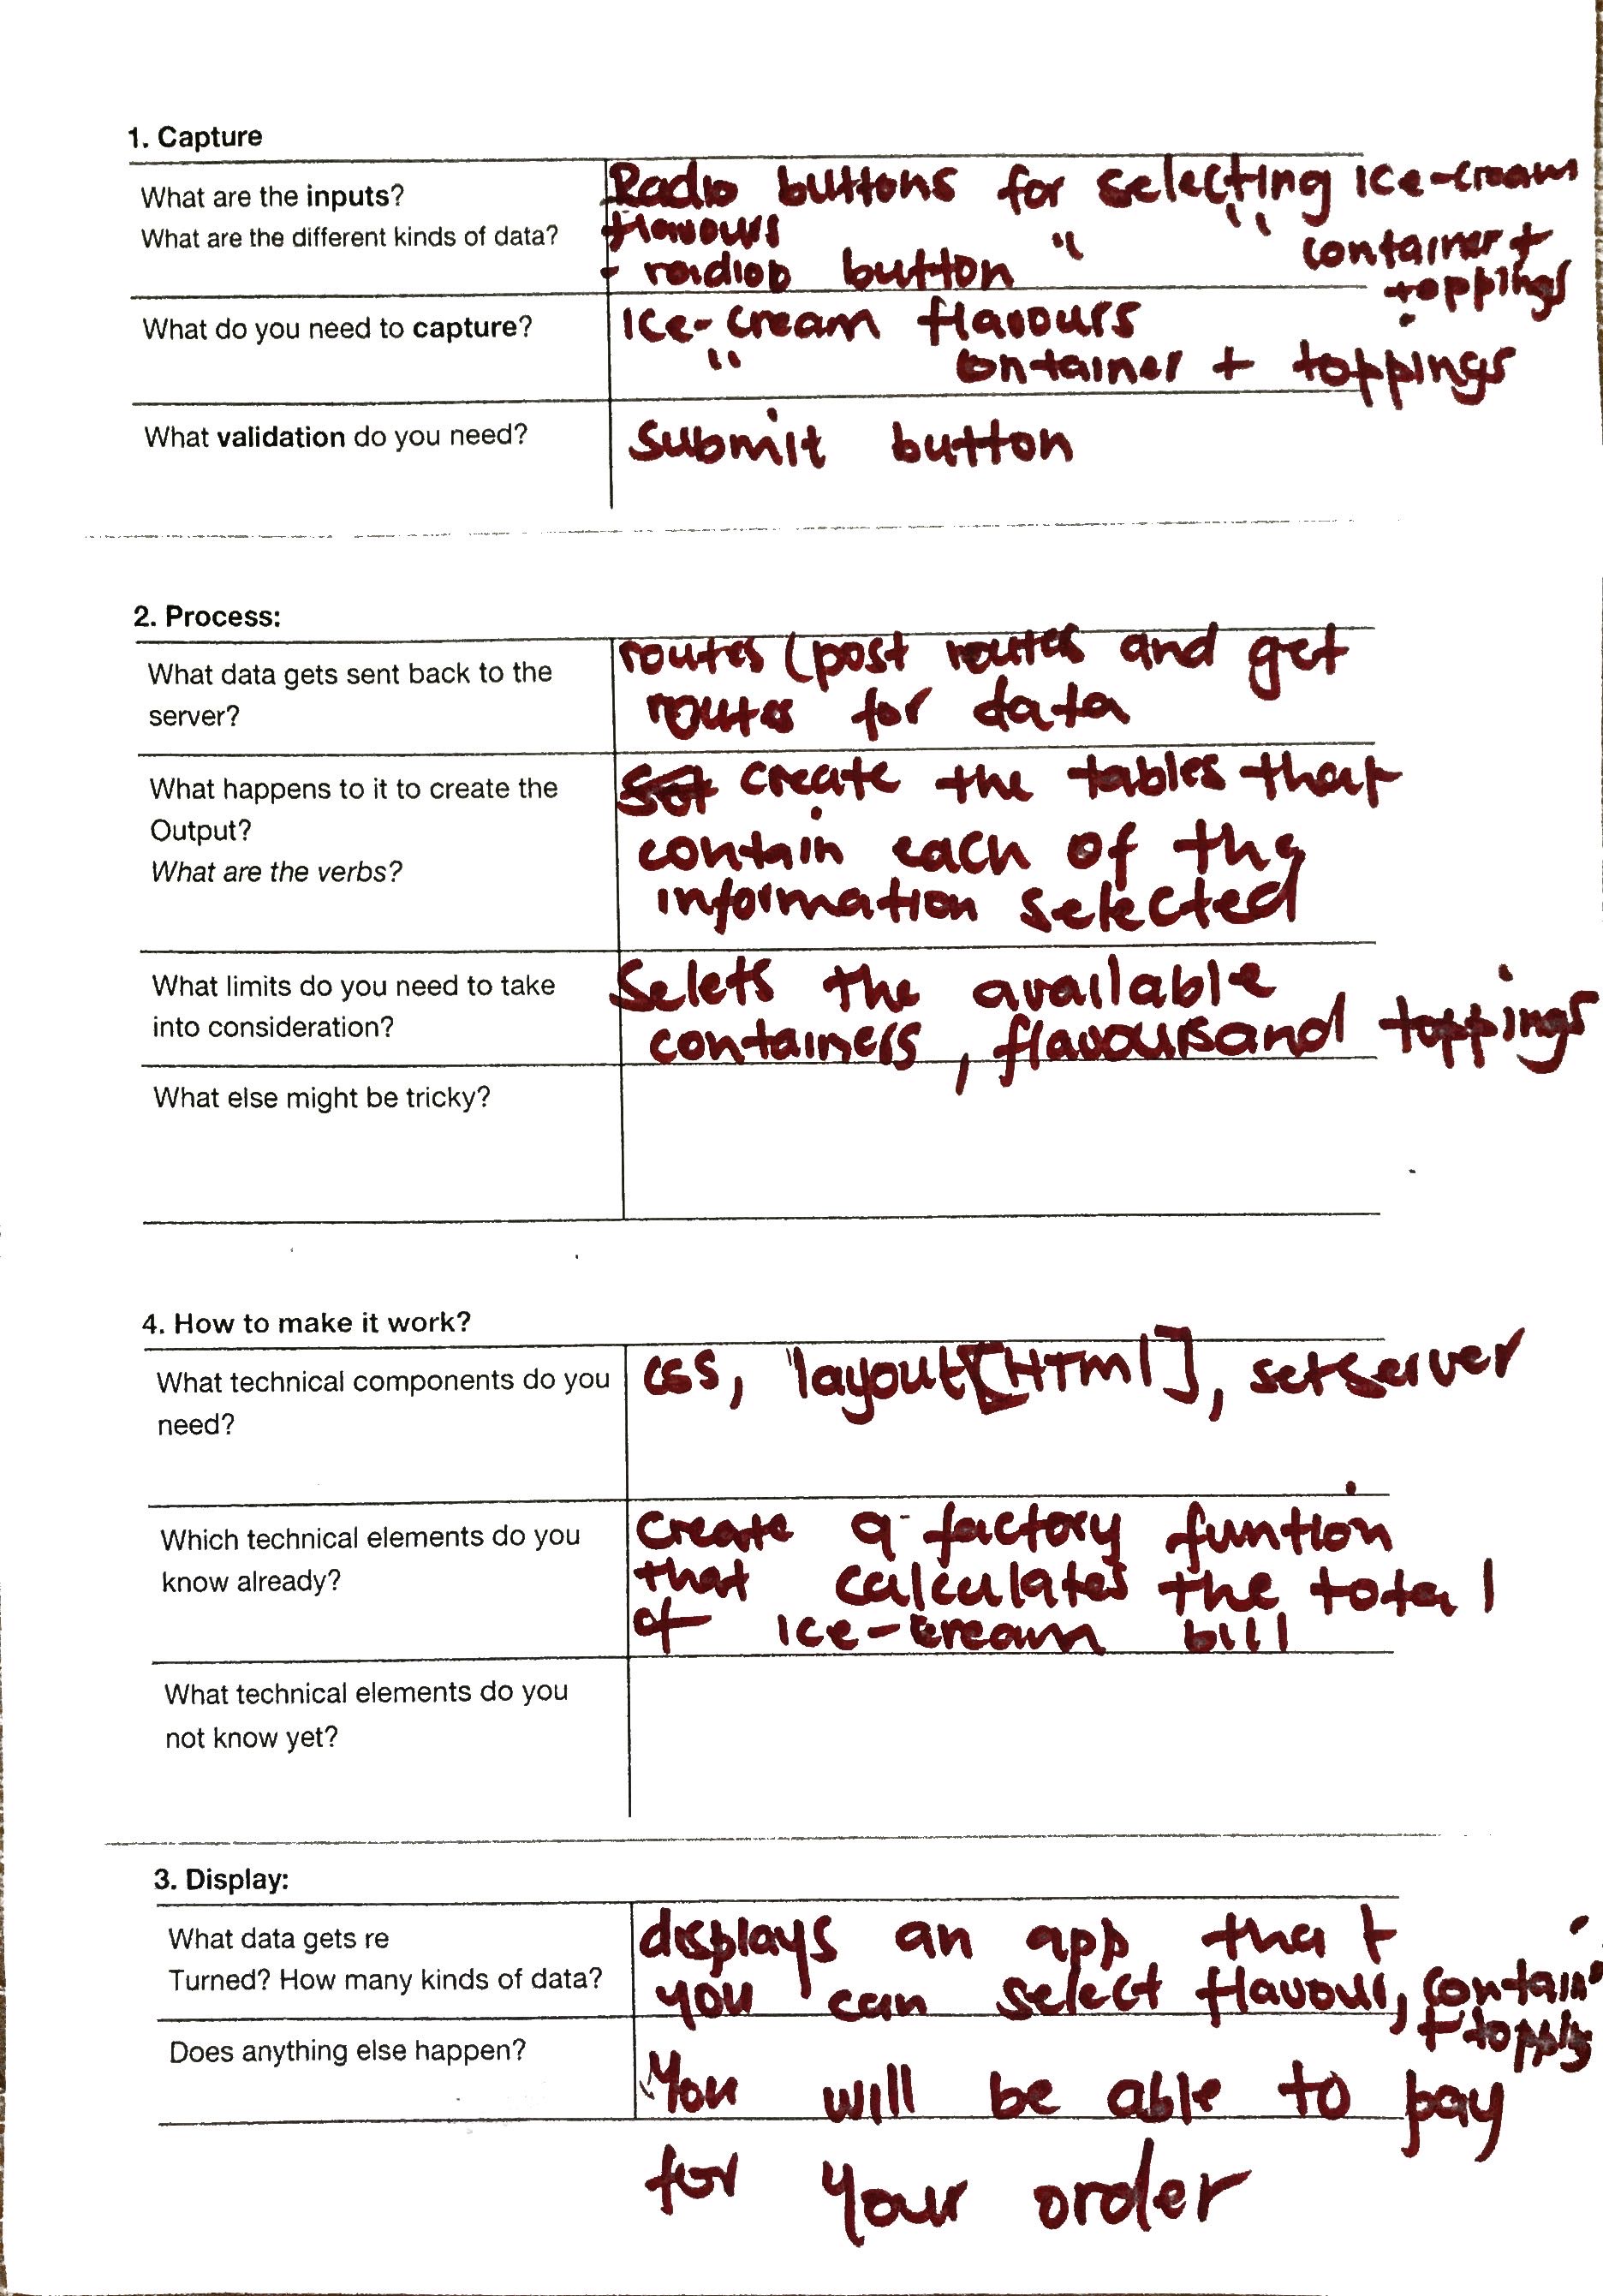 1. Capture
What are the inputs?
What are the different kinds of data?
Radio buttons for selecting ice-cream
flavours
- radiop button " " " container +
toppings
What do you need to capture?
Ice-cream flavours
" container + toppings
What validation do you need?
Submit button
2. Process:
What data gets sent back to the
server?
routes (post routes and get
routes for data
What happens to it to create the
Output?
What are the verbs?
create the tables that
contain each of the
information selected
What limits do you need to take
into consideration?
Selets the available
containers, flavours and toppings
What else might be tricky?
4. How to make it work?
What technical components do you
need?
CSS, layout[HTml], setserver
Which technical elements do you
know already?
Create a factory funtion
that calculates the total
of ice-cream bill
What technical elements do you
not know yet?
3. Display:
What data gets re
Turned? How many kinds of data?
displays an app that
you can select flavour, contain
+ topping
Does anything else happen?
You will be able to pay
for your order